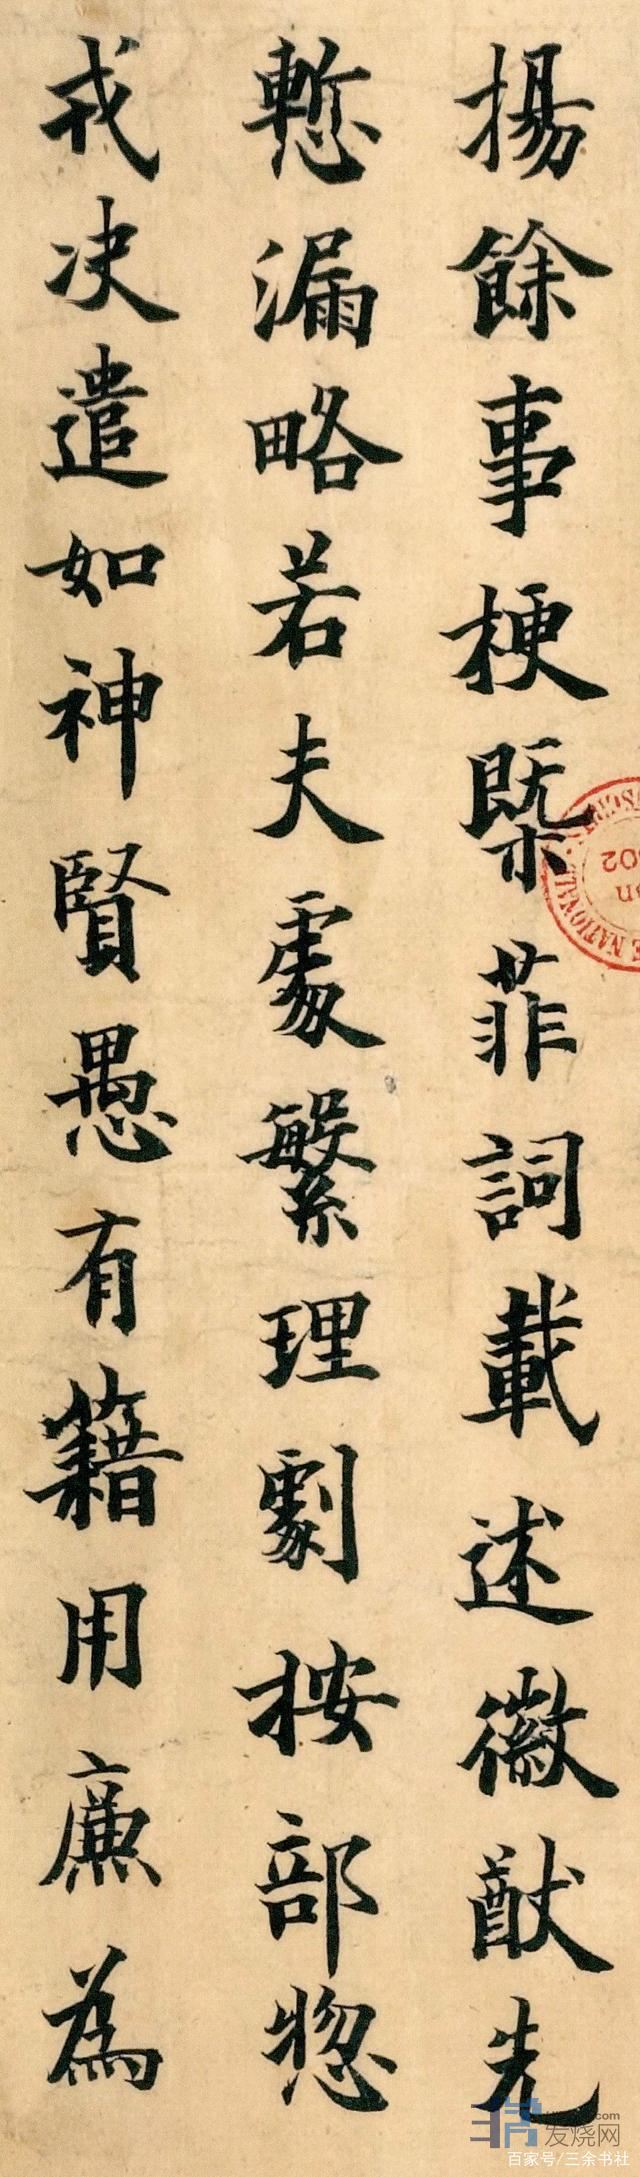 揚餘事梗槩菲詞載述徽猷先
慙漏略若夫處繁理劇按部惣
戎决遣如神賢愚有籍用廉為
NATIONAL
发烧网
百家号/三余书社